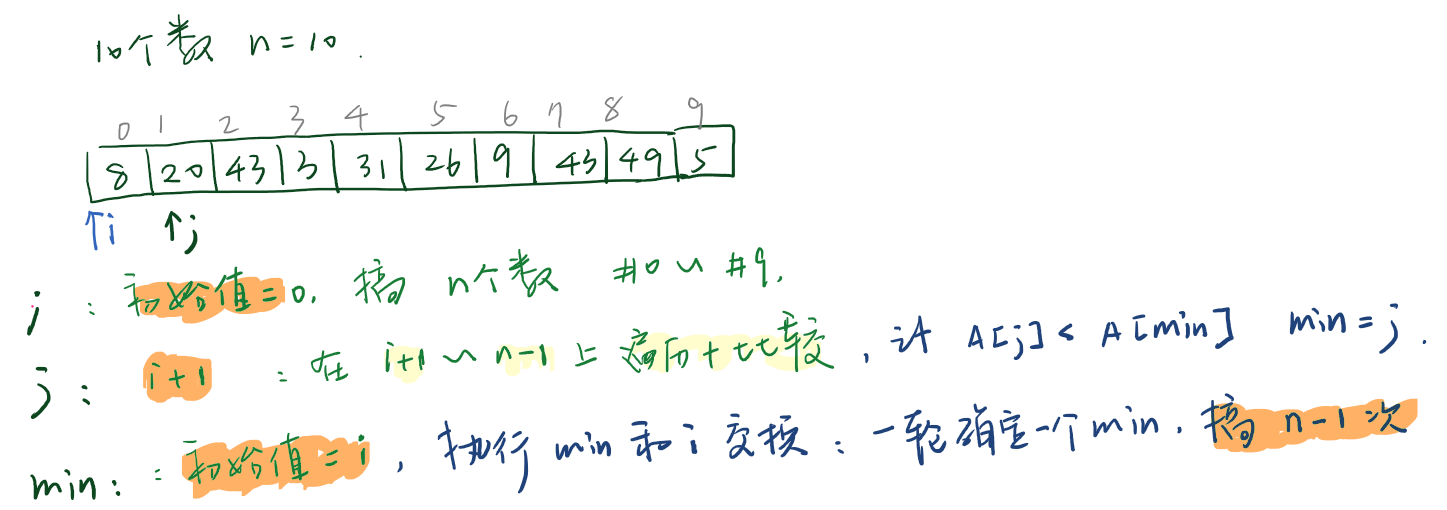 10个数 n=10.
0 1 2 3 4 5 6 7 8 9
8 20 43 3 31 26 9 43 49 5
↑i ↑j
i : 初始值=0. 搞 n个数 #0~#9.
j : i+1 : 在 i+1 ~ n-1 上遍历+比较, 让 A[j]<A[min] min=j.
min: : 初始值=i, 执行 min 和 i 交换: 一轮确定一个min. 搞 n-1次